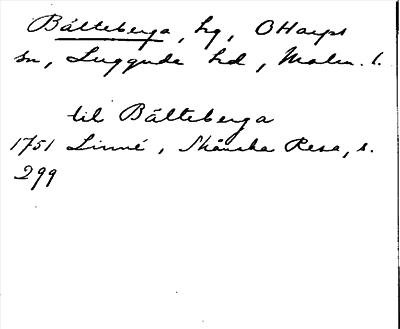 Bälteberga, hg, O Harps
sn, Luggude hd, Malm. l.
til Bälteberga
1751 Linné, Skånska Resa, s.
299